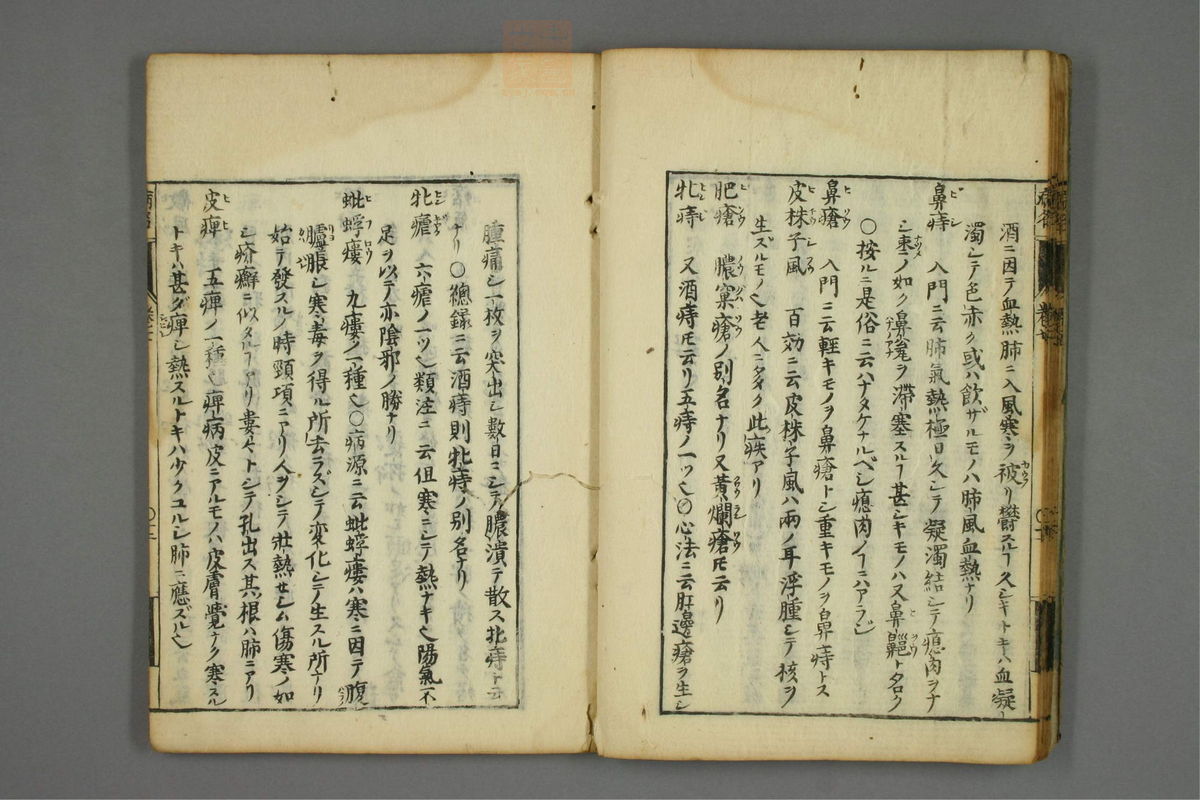 酒ニ因テ血熱肺ニ入風寒ヲ被リ鬱スルヿ久シキトキハ血凝
濁シテ色赤ク或ハ飲ザルモノハ肺風血熱ナリ
鼻痔 入門ニ云肺氣熱極日久シテ凝濁結シテ瘜肉ヲナ
シ棗ノ如ク鼻ヲ滞塞スルヿ甚シキモノハ又鼻齆トナヅク
〇按ルニ是俗ニ云ハナタケナルベシ瘜肉ノヿニハアラズ
鼻瘡 入門ニ云輕キモノヲ鼻瘡トシ重キモノヲ鼻痔トス
皮株子風 百効ニ云皮株子風ハ兩ノ耳浮腫シテ核ヲ
生ズルモノ也老人ニ多ク此疾アリ
肥瘡 膿窠瘡ノ別名ナリ又黄爛瘡氏云リ
牝痔 又酒痔氏云リ五痔ノ一ツ也〇心法ニ云肛邊瘡ヲ生シ
腫痛シ一枚ヲ突出シ數日ニシテ膿潰テ散ス牝痔ト云
ナリ〇總録ニ云酒痔則牝痔ノ別名ナリ
牝瘧 六瘧ノ一ツ也類注ニ云但寒ニシテ熱ナキ也陽氣不
足ヲ以テ亦陰邪ノ勝ナリ
蚍蜉瘻 九瘻ノ一種也〇病源ニ云蚍蜉瘻ハ寒ニ因テ腹
臚脹シ寒毒ヲ得ル所去ラズシテ変化シテ生スル所ナリ
始テ發スルノ時頸項ニアリ人ヲシテ壮熱セシム傷寒ノ如
シ疥癬ニ似タルヿアリ婁々トシテ孔出ス其根ハ肺ニアリ
皮痺 五痺ノ一種也痺病皮ニアルモノハ皮膚覺ナク寒スル
トキハ甚ダ痺シ熱スルトキハ少クユルシ肺ニ應ズル也